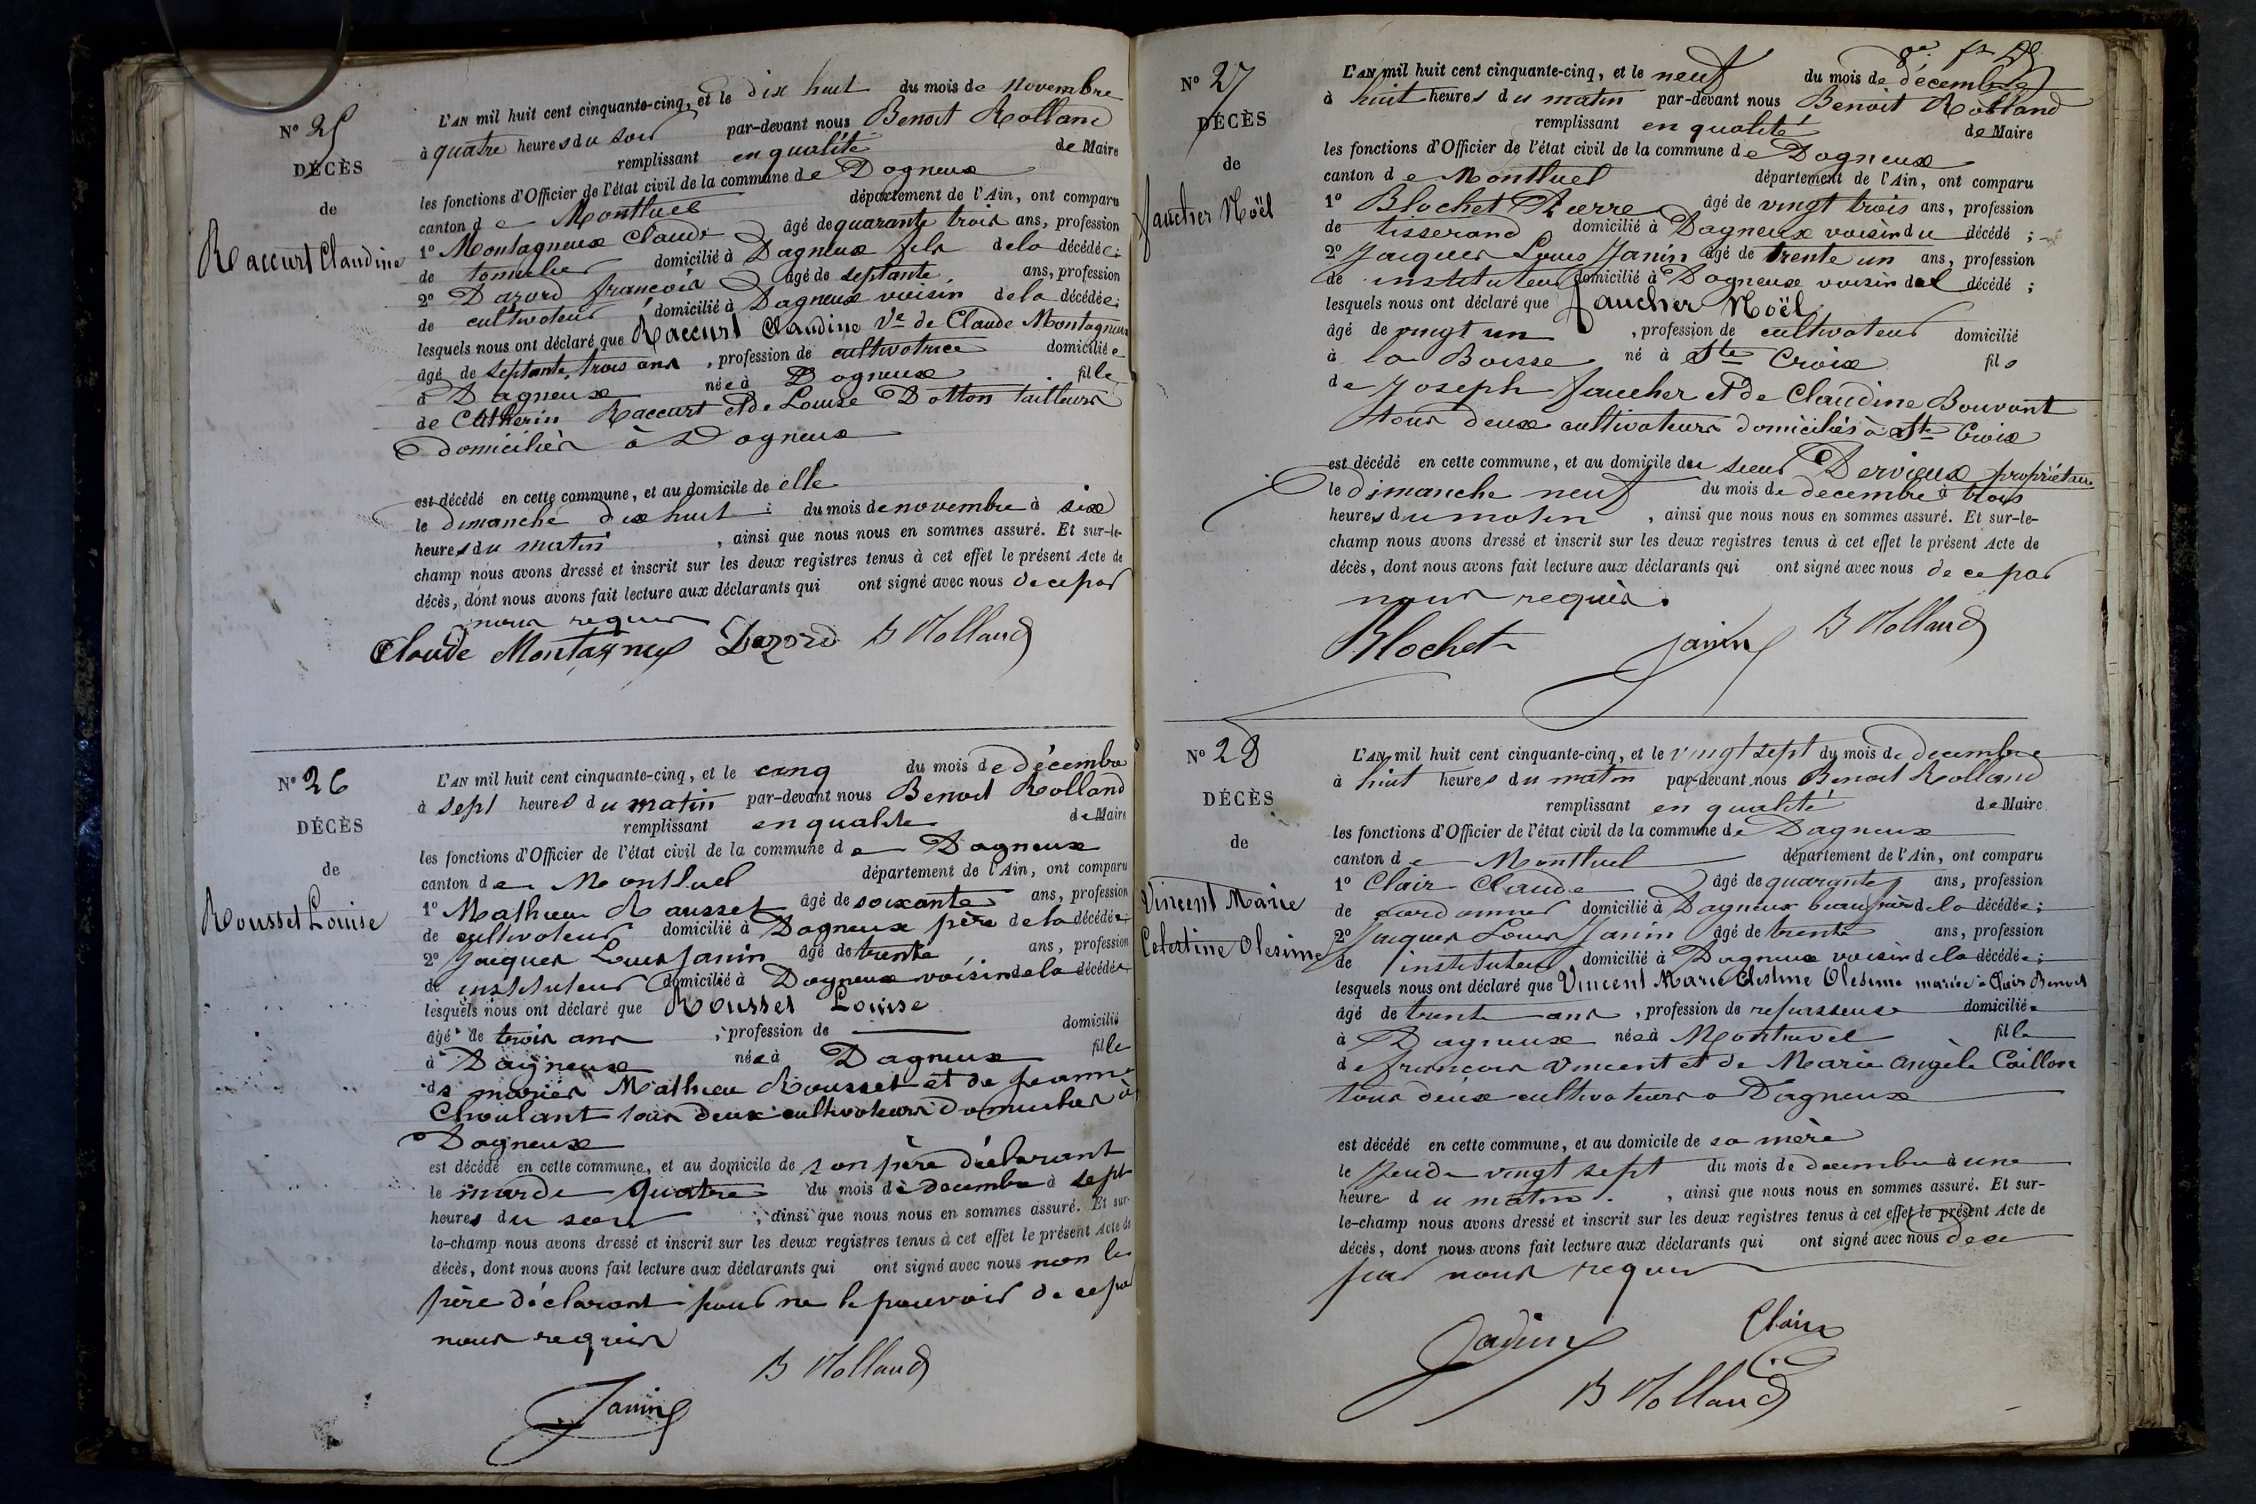 N° 25
DÉCÈS
de
Raccurt Claudine
L'AN mil huit cent cinquante-cinq, et le dix huit du mois de Novembre
à quatre heures du soir par-devant nous Benoit Rolland
remplissant en qualité de Maire
les fonctions d'Officier de l'état civil de la commune de Dagneux
canton de Montluel département de l'Ain, ont comparu
1° Montagneux Claude âgé de quarante trois ans, profession
de tonnelier domicilié à Dagneux fils de la décédée;
2° Dazord françois âgé de septante ans, profession
de cultivateur domicilié à Dagneux voisin de la décédée;
lesquels nous ont déclaré que Raccurt Claudine Ve de Claude Montagneux
âgé de septante trois ans, profession de cultivatrice domiciliée
à Dagneux née à Dagneux fille
de Catherin Raccurt et de Louise Dotton tailleurs
domiciliés à Dagneux
est décédé en cette commune, et au domicile de elle
le dimanche dix huit du mois de novembre à six
heures du matin, ainsi que nous nous en sommes assuré. Et sur-le-
champ nous avons dressé et inscrit sur les deux registres tenus à cet effet le présent Acte de
décès, dont nous avons fait lecture aux déclarants qui ont signé avec nous de ce par
nous requis
Claude Montagneux Dazord B Rolland
N° 26
DÉCÈS
de
Rousset Louise
L'AN mil huit cent cinquante-cinq, et le cinq du mois de décembre
à sept heures du matin par-devant nous Benoit Rolland
remplissant en qualité de Maire
les fonctions d'Officier de l'état civil de la commune de Dagneux
canton de Montluel département de l'Ain, ont comparu
1° Mathieu Rousset âgé de soixante ans, profession
de cultivateur domicilié à Dagneux père de la décédée;
2° Jacques Louis Janin âgé de trente ans, profession
de instituteur domicilié à Dagneux voisin de la décédée
lesquels nous ont déclaré que Rousset Louise
âgé de trois ans, profession de domicilié
à Dagneux née à Dagneux fille
ds mariés Mathieu Rousset et de Jeanne
Choulant tous deux cultivateurs domiciliés à
Dagneux
est décédé en cette commune, et au domicile de son père déclarant
le mardi quatre du mois de décembre à sept
heures du soir, ainsi que nous nous en sommes assuré. Et sur-
le-champ nous avons dressé et inscrit sur les deux registres tenus à cet effet le présent Acte de
décès, dont nous avons fait lecture aux déclarants qui ont signé avec nous non le
père déclarant pour ne le pouvoir de ce par
nous requis
B Rolland
Janin
N° 27
DÉCÈS
de
faucher Noël
L'AN mil huit cent cinquante-cinq, et le neuf du mois de décembre
à huit heures du matin par-devant nous Benoit Rolland
remplissant en qualité de Maire
les fonctions d'Officier de l'état civil de la commune de Dagneux
canton de Montluel département de l'Ain, ont comparu
1° Blochet Pierre âgé de vingt trois ans, profession
de tisserand domicilié à Dagneux voisin du décédé;
2° Jacques Louis Janin âgé de trente un ans, profession
de instituteur domicilié à Dagneux voisin du décédé;
lesquels nous ont déclaré que faucher Noël
âgé de vingt un, profession de cultivateur domicilié
à la Boisse né à Ste Croix fils
de Joseph faucher et de Claudine Bouvant
tous deux cultivateurs domiciliés à Ste Croix
est décédé en cette commune, et au domicile du sieur Dervieux propriétaire
le dimanche neuf du mois de décembre à trois
heures du matin, ainsi que nous nous en sommes assuré. Et sur-le-
champ nous avons dressé et inscrit sur les deux registres tenus à cet effet le présent Acte de
décès, dont nous avons fait lecture aux déclarants qui ont signé avec nous de ce par
nous requis.
Blochet Janin B Rolland
N° 28
DÉCÈS
de
Vincent Marie
Celestine Olesime
L'AN mil huit cent cinquante-cinq, et le vingt sept du mois de décembre
à huit heures du matin par-devant nous Benoit Rolland
remplissant en qualité de Maire
les fonctions d'Officier de l'état civil de la commune de Dagneux
canton de Montluel département de l'Ain, ont comparu
1° Clair Claude âgé de quarante ans, profession
de cordonnier domicilié à Dagneux beau frère de la décédée;
2° Jacques Louis Janin âgé de trente ans, profession
de instituteur domicilié à Dagneux voisin de la décédée;
lesquels nous ont déclaré que Vincent Marie Celestine Olesime mariée à Clair Benoit
âgé de trente ans, profession de repasseuse domiciliée
à Dagneux née à Montrevel fille
de françois Vincent et de Marie Angèle Caillon
tous deux cultivateurs à Dagneux
est décédé en cette commune, et au domicile de sa mère
le Jeudi vingt sept du mois de décembre à une
heure du matin, ainsi que nous nous en sommes assuré. Et sur-
le-champ nous avons dressé et inscrit sur les deux registres tenus à cet effet le présent Acte de
décès, dont nous avons fait lecture aux déclarants qui ont signé avec nous de ce
par nous requis
Janin Clair
B Rolland